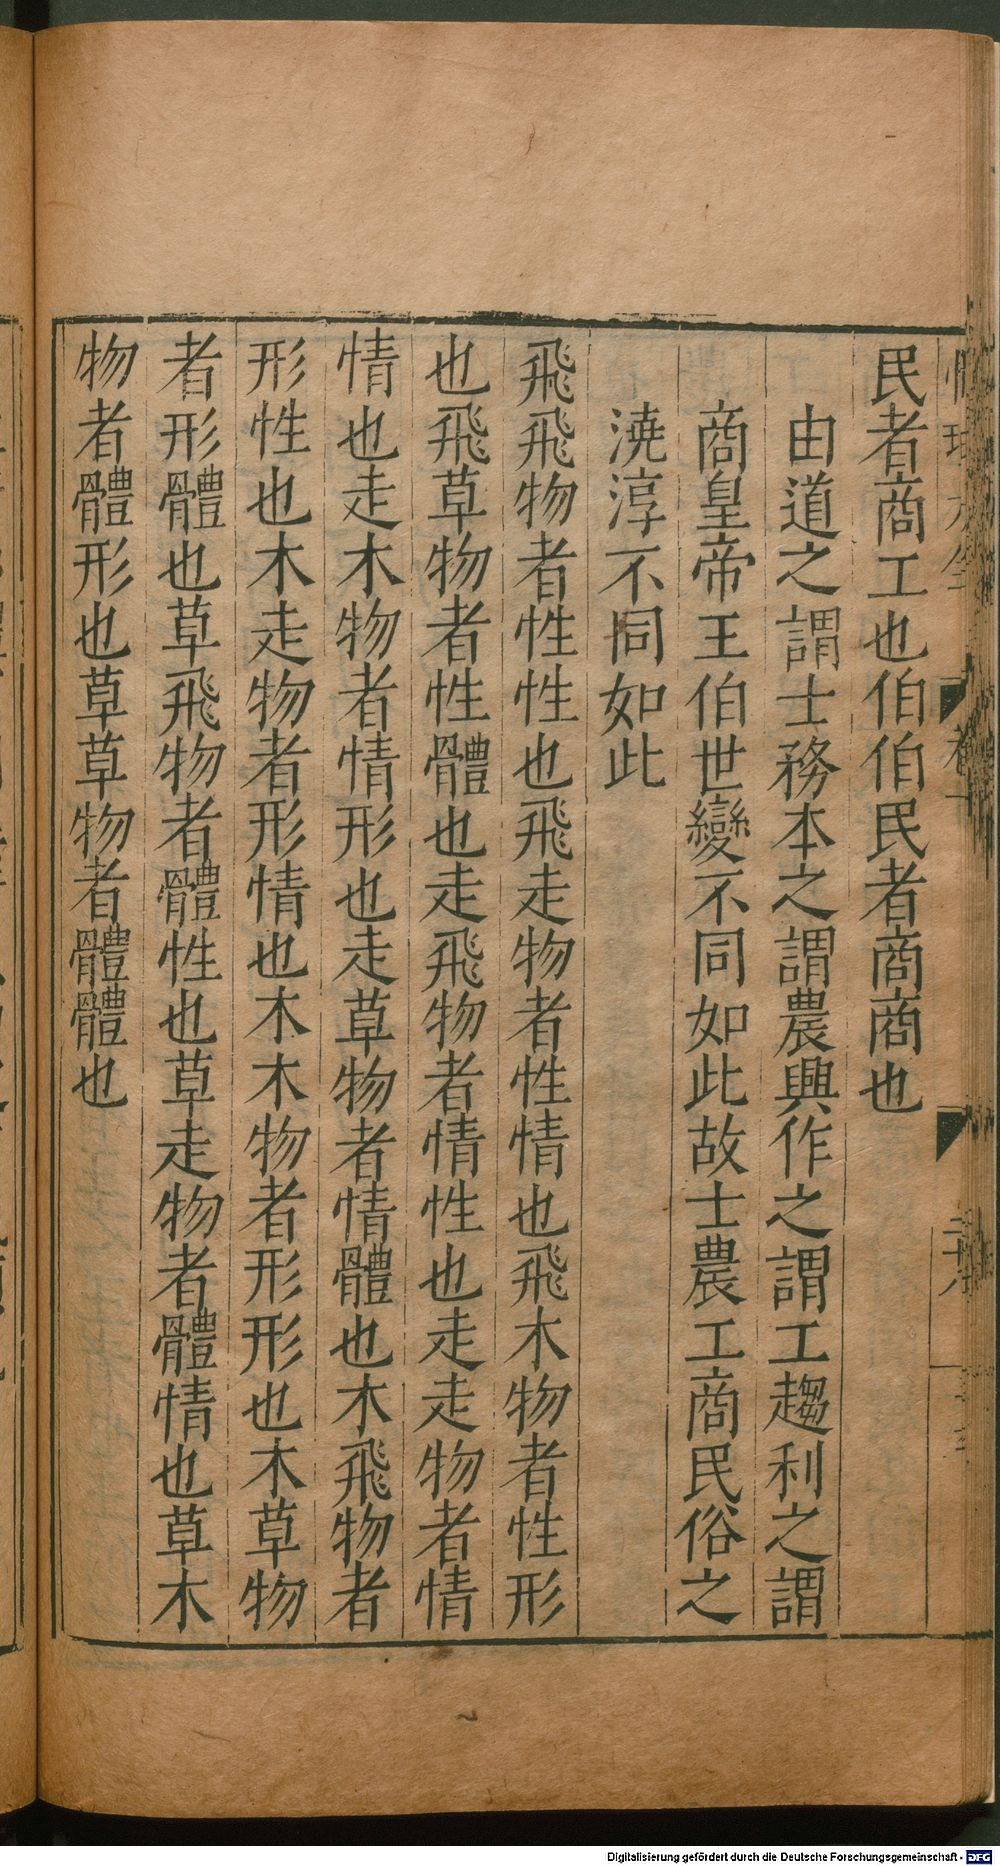 民者商工也伯伯民者商商也
由道之謂士務本之謂農興作之謂工趨利之謂
商皇帝王伯世變不同如此故士農工商民俗之
澆淳不同如此
飛飛物者性性也飛走物者性情也飛木物者性形
也飛草物者性體也走飛物者情性也走走物者情
情也走木物者情形也走草物者情體也木飛物者
形性也木走物者形情也木木物者形形也木草物
者形體也草飛物者體性也草走物者體情也草木
物者體形也草草物者體體也
Digitalisierung gefördert durch die Deutsche Forschungsgemeinschaft - DFG